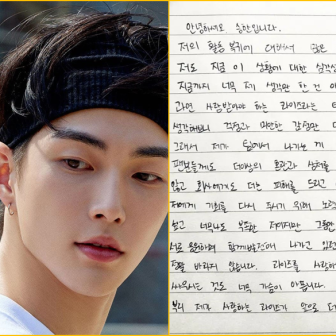 안녕하세요 승한입니다.
저의 활동 복귀에 대해서 많은
저도 지금 이 상황에 대한 심각성
지금까지 너무 제 생각만 한 건 아
과연 사랑받아야 하는 라이즈라는
생각해보니 걱정과 미안한 감정만
그래서 제가 팀에서 나가는 게
팬분들께도 더이상의 혼란과 상처를
않고 회사에게도 더는 피해를 드리고
저에게 기회를 다시 주시기 위해 노력
싶고 너무나도 부족한 저이지만 그동안
서로 함께 나가고 있는
바라지 않습니다. 라이즈를 사랑하
싸우시는 것도 너무 가슴이 아픕니다.
부디 제가 사랑하는 라이즈가 앞으로